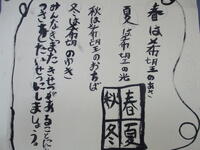 春は希望のあさ
夏は希望の光
秋は希望のおちば
冬は希望のゆき
みんなきまったきせつがあることに
たいせつにしましょう。
春夏
秋冬